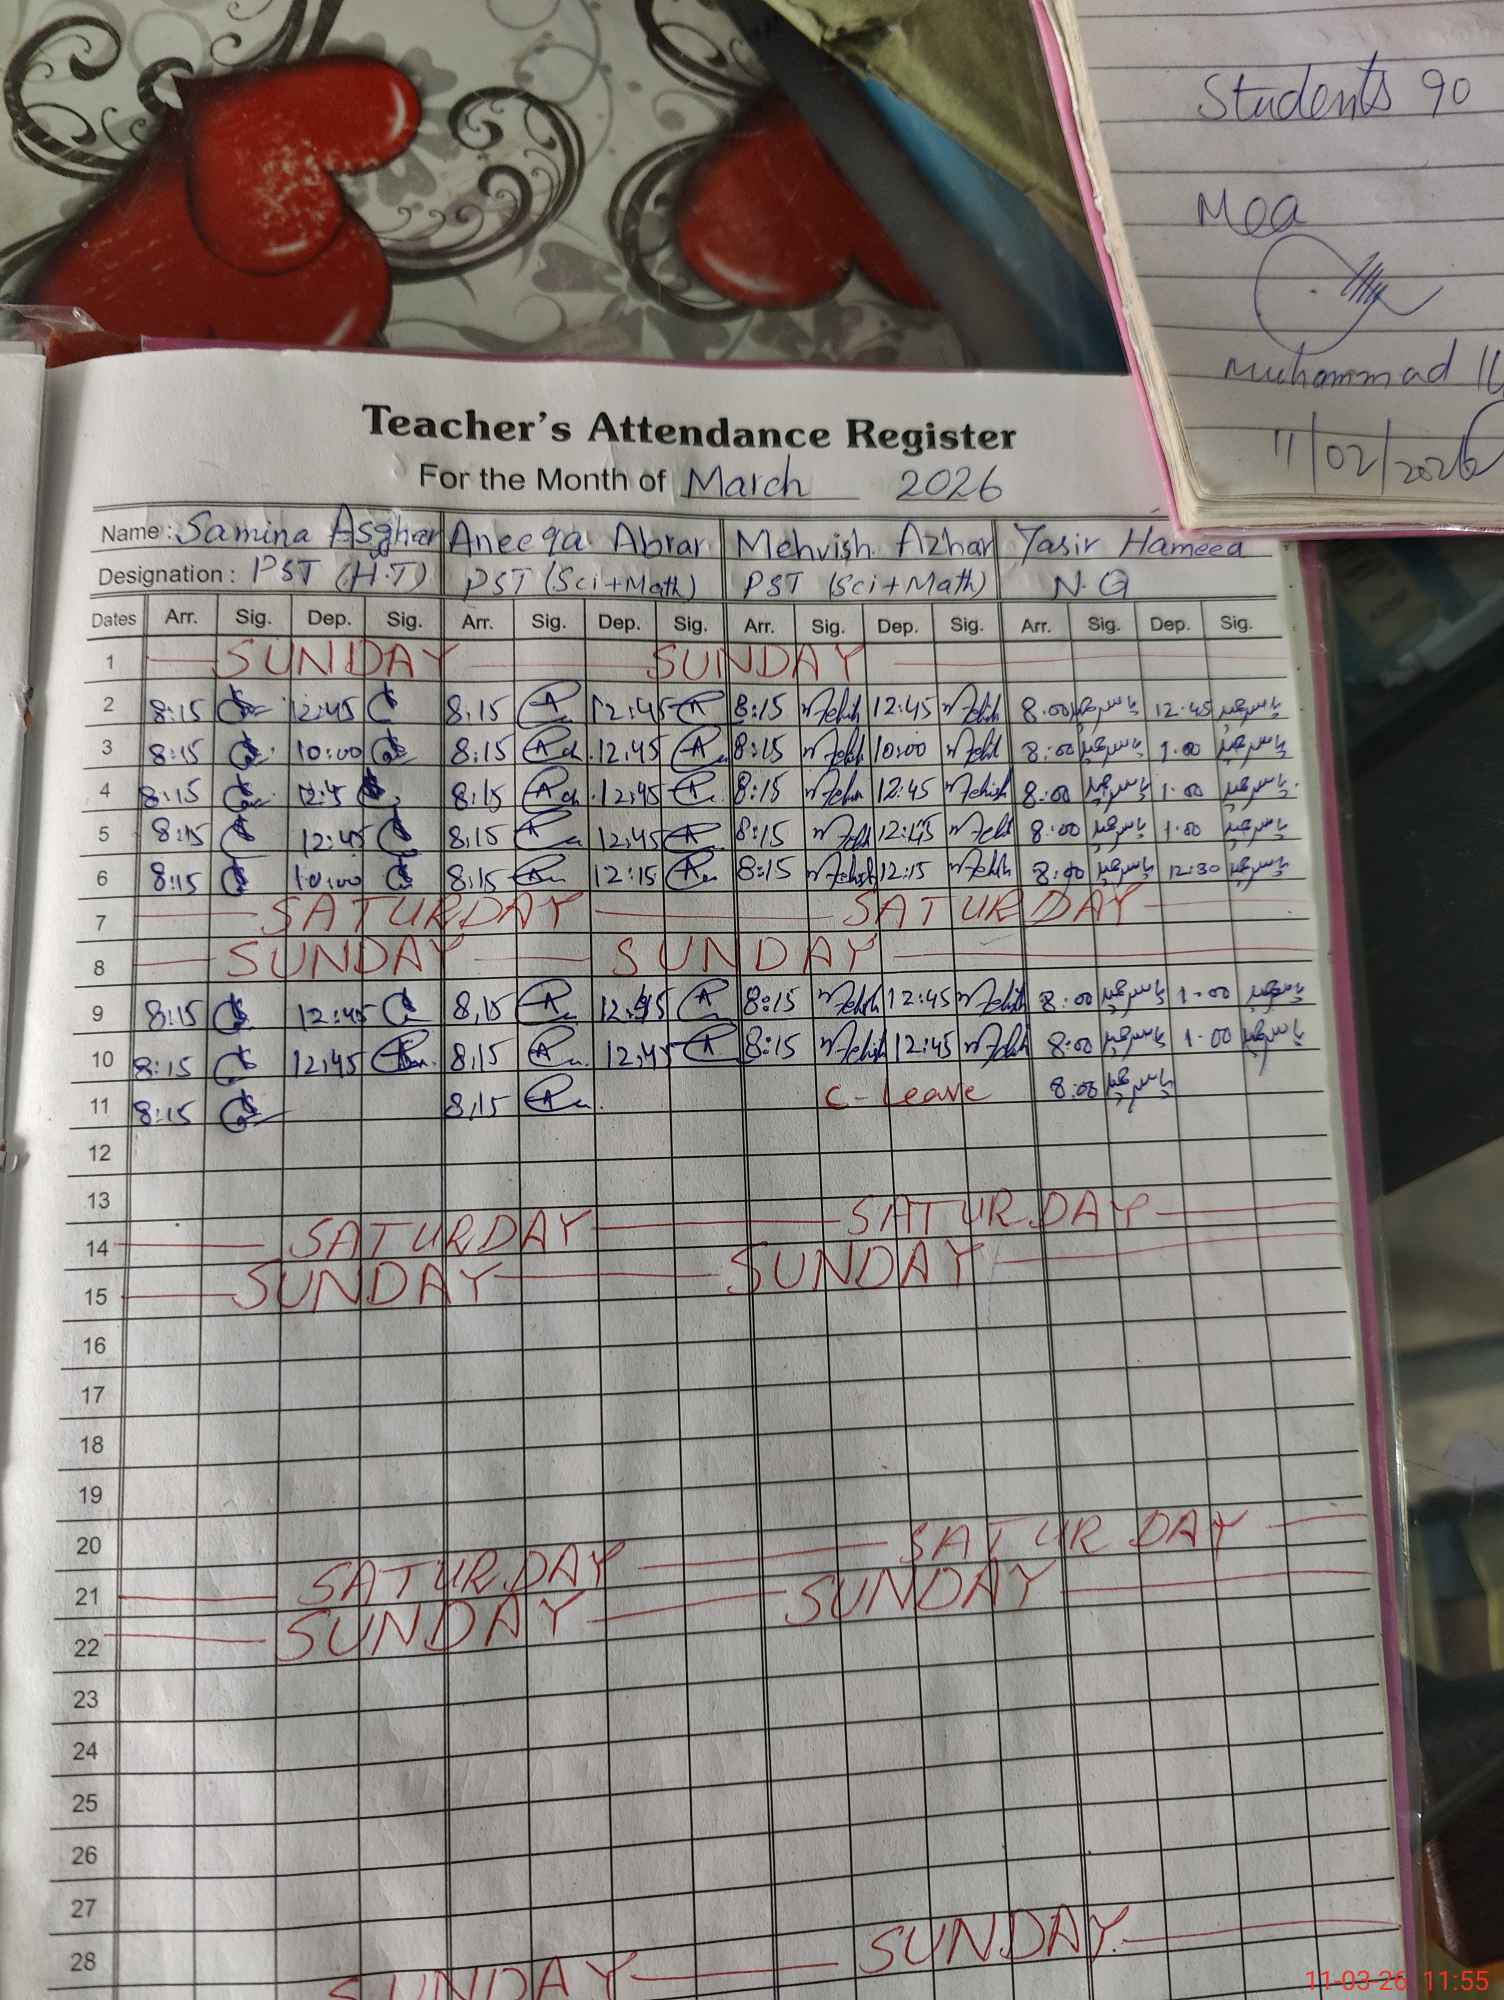 Students 90
Mea
Muhammad
11/02/2026
Teacher's Attendance Register
For the Month of March 2026
Name: Samina Asghar Aneeqa Abrar Mehvish Azhar Yasir Hameed
Designation: PST (H.T) PST (Sci+Math) PST (Sci+Math) N.Q
Dates Arr. Sig. Dep. Sig. Arr. Sig. Dep. Sig. Arr. Sig. Dep. Sig. Arr. Sig. Dep. Sig.
1 SUNDAY SUNDAY
2 8:15 12:45 8:15 12:45 8:15 12:45 8:00 یاسرحمید 12:45 یاسرحمید
3 8:15 10:00 8:15 12:45 8:15 10:00 8:00 یاسرحمید 1:00 یاسرحمید
4 8:15 12:45 8:15 12:45 8:15 12:45 8:00 یاسرحمید 1:00 یاسرحمید
5 8:15 12:45 8:15 12:45 8:15 12:45 8:00 یاسرحمید 1:00 یاسرحمید
6 8:15 10:00 8:15 12:15 8:15 12:15 8:00 یاسرحمید 12:30 یاسرحمید
7 SATURDAY SATURDAY
8 SUNDAY SUNDAY
9 8:15 12:45 8:15 12:45 8:15 12:45 8:00 یاسرحمید 1:00 یاسرحمید
10 8:15 12:45 8:15 12:45 8:15 12:45 8:00 یاسرحمید 1:00 یاسرحمید
11 8:15 8:15 C-Leave 8:00 یاسرحمید
12
13
14 SATURDAY SATURDAY
15 SUNDAY SUNDAY
16
17
18
19
20
21 SATURDAY SATURDAY
22 SUNDAY SUNDAY
23
24
25
26
27
28
SUNDAY SUNDAY
11-03-26 11:55